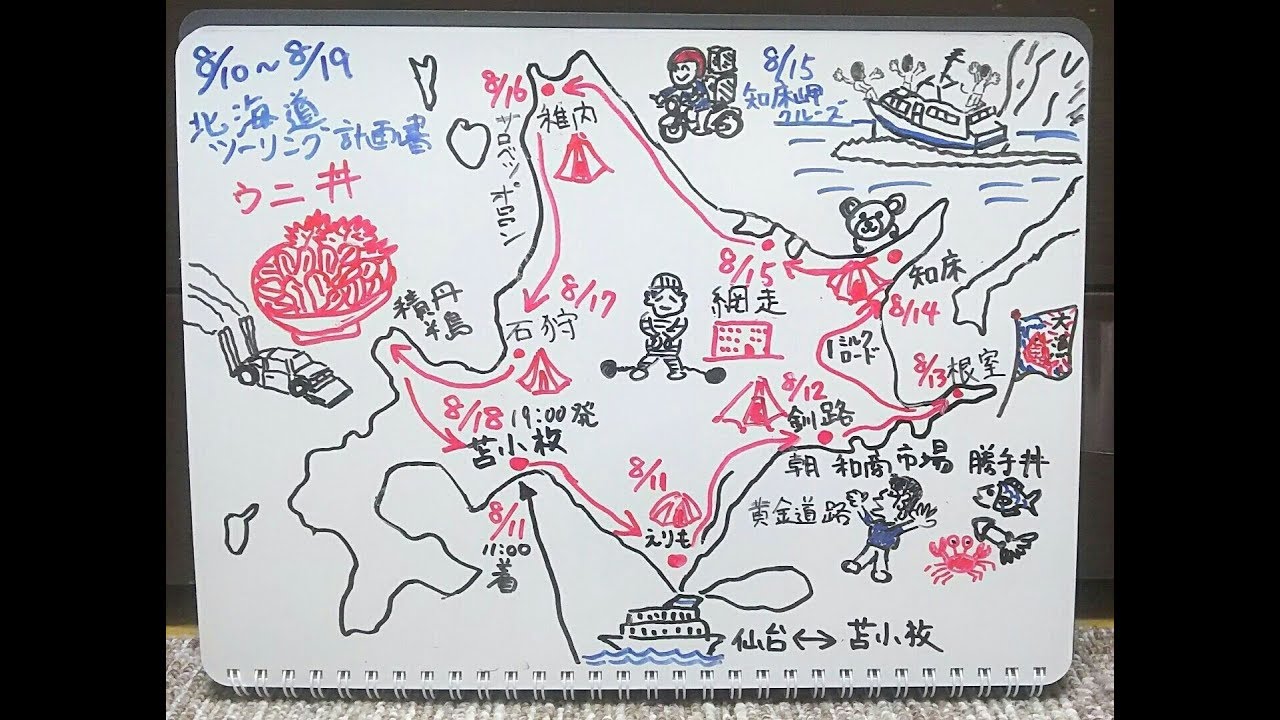 8/10～8/19
北海道
ツーリング計画書
ウニ丼
8/16
稚内
サロベツ
オロロン
8/15
知床岬
クルーズ
8/15
網走
知床
8/14
ミルク
ロード
8/13
根室
大漁
8/17
石狩
積丹
半島
8/18
19:00発
苫小牧
8/12
釧路
朝 和商市場 勝手丼
黄金道路
8/11
えりも
8/11
11:00
着
仙台↔苫小牧